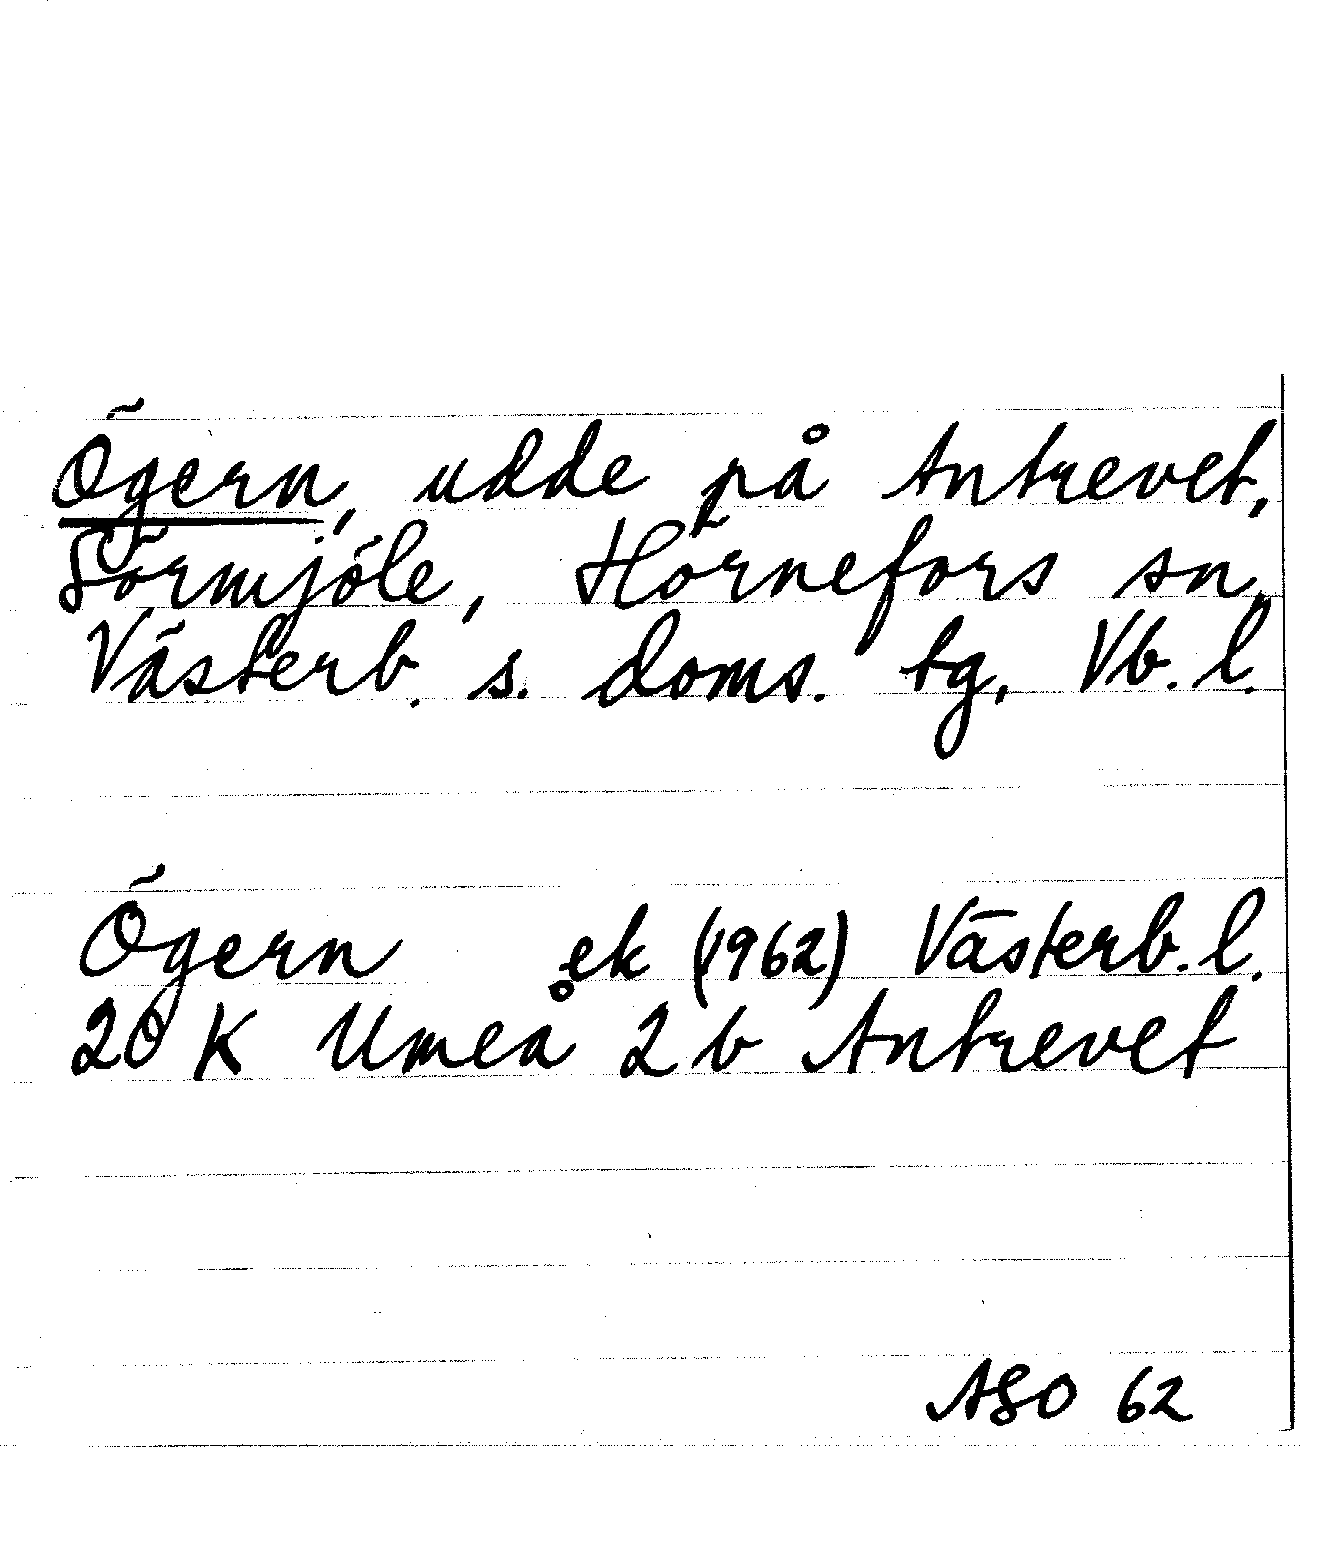 Ögern, udde på Antrevet,
Sörmjöle, Hörnefors sn,
Västerb. s. doms. tg, Vb. l.
Ögern ek (1962) Västerb. l.
20 K Umeå 2 b Antrevet
ASO 62